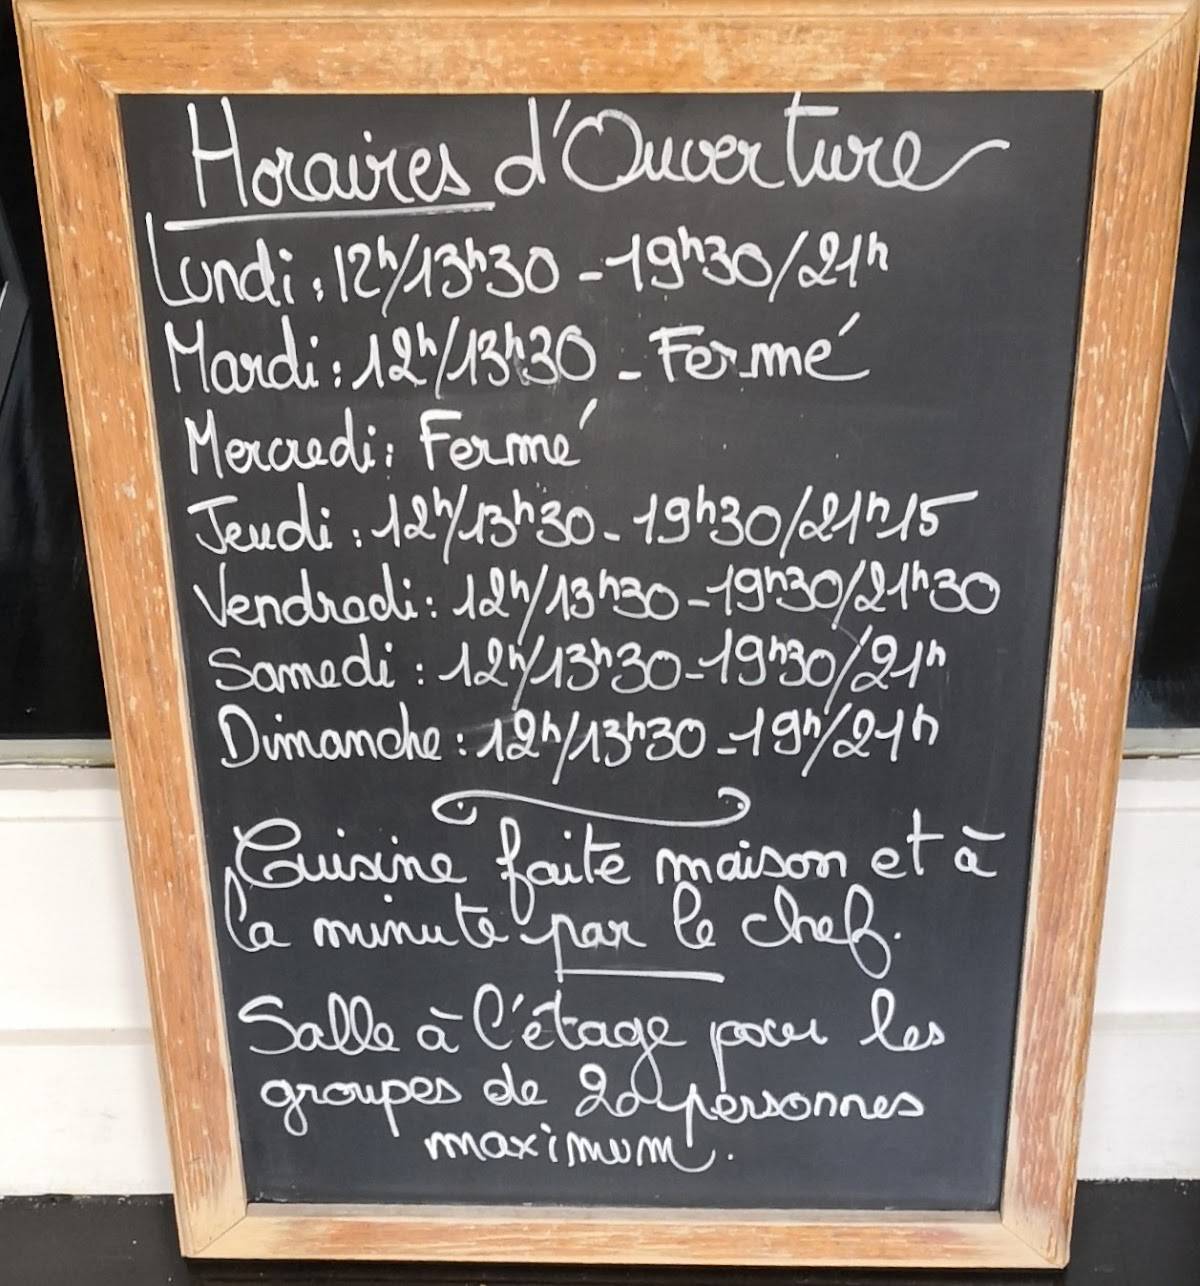 Horaires d'Ouverture
Lundi : 12h/13h30 - 19h30/21h
Mardi : 12h/13h30 - Fermé
Mercredi : Fermé
Jeudi : 12h/13h30 - 19h30/21h15
Vendredi : 12h/13h30 - 19h30/21h30
Samedi : 12h/13h30 - 19h30/21h
Dimanche : 12h/13h30 - 19h/21h
Cuisine faite maison et à
la minute par le chef.
Salle à l'étage pour les
groupes de 20 personnes
maximum.